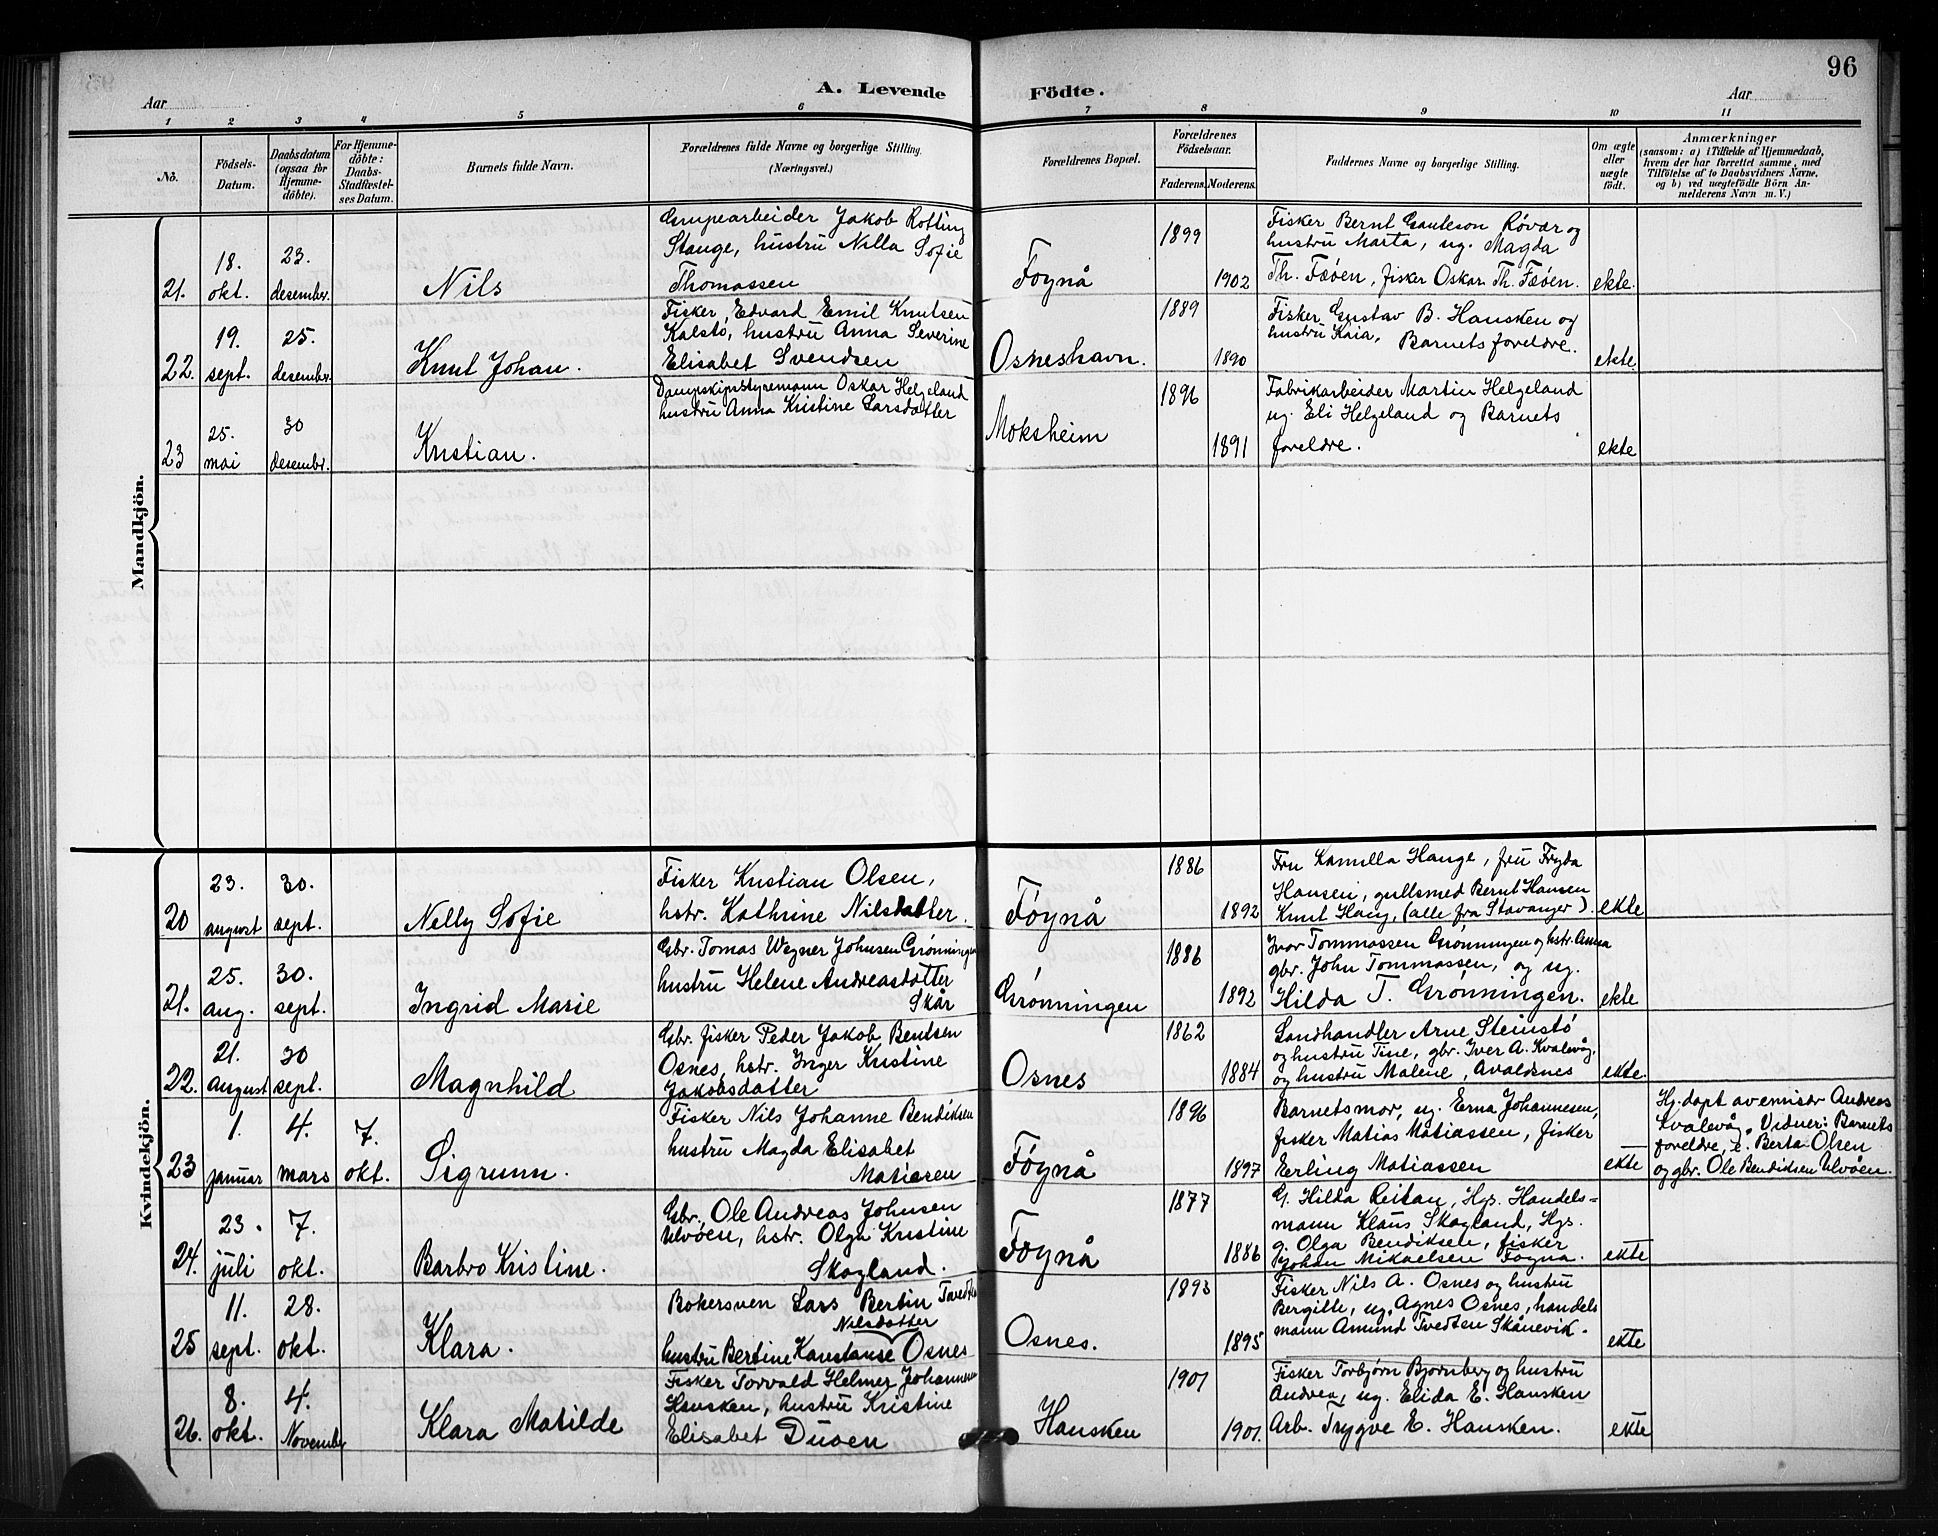 96
A. Levende Födte.
Aar
Aar
1 2 3 4 5 6 7 8 9 10 11
No.
Födsels-
Datum.
Daabsdatum
(ogsaa for
Hjemme-
döbte).
For Hjemme-
döbte:
Daabs-
Stadfæstel-
ses Datum.
Barnets fulde Navn.
Forældrenes fulde Navne og borgerlige Stilling.
(Næringsvei.)
Forældrenes Bopæl.
Forældrenes
Födselsaar.
Faderens. Moderens.
Faddernes Navne og borgerlige Stilling.
Om ægte
eller
uægte
födt.
Anmærkninger
(saasom: a) i Tilfælde af Hjemmedaab,
hvem der har forrettet samme, med
Tilföielse af to Daabsvidners Navne,
og b) ved uægtefödte Börn An-
melderens Navn m. V.)
Mandkjön.
21.
18.
okt.
23.
desember.
Nils
Grupearbeider Jakob Rotting
Stange, hustru Nilla Sofie
Thomassen
Føynå
1899
1902
Fisker Bernt Gauteson Røvær og
hustru Marta, ug. Magda
Th. Fæøen, fisker Oskar Th. Fæøen.
ekte.
22.
19.
sept.
25.
desember.
Knut Johan.
Fisker, Edvard Emil Knutsen
Kalstø, hustru Anna Severine
Elisabet Svendsen
Osneshavn.
1889
1890
Fisker Gustav B. Hausken og
hustru Kaia, Barnets foreldre.
ekte
23
25.
mai
30
desembr.
Kristian.
Dampskipsstyremann Oskar Helgeland
hustru Anna Kristine Larsdatter
Moksheim
1896
1891
Fabrikarbeider Martin Helgeland
ug. Eli Helgeland og Barnets
foreldre.
ekte
Kvindekjön.
20
23.
august
30.
sept.
Nelly Sofie
Fisker Kristian Olsen,
hstr. Kathrine Nilsdatter.
Føynå
1886
1892
Fru Kamilla Hauge, fru Fryda
Hansen, gullsmed Bernt Hansen
Knut Haug, (alle fra Stavanger).
ekte
21.
25.
aug.
30.
sept.
Ingrid Marie
Gbr. Tomas Wegner Johnsen Grønningen
hustru Helene Andreasdatter
Skår
Grønningen
1886
1892
Ivar Tommassen Grønningen og hstr. Anna
gbr. John Tommassen, og ug.
Hilda T. Grønningen.
ekte
22.
21.
august
30
sept.
Magnhild
Gbr. fisker Peder Jakob Bentsen
Osnes, hstr. Inger Kristine
Jakobsdatter
Osnes
1862
1884
Landhandler Arne Steinstø
og hustru Tine, gbr. Iver A. Kvalevåg,
og hustru Malene, Avaldsnes
ekte.
23
1.
januar
4.
mars
7.
okt.
Sigrunn.
Fisker Nils Johanne Bendiksen
hustru Magda Elisabet
Matiasen
Føynå
1896
1897
Barnets mor, ug. Erna Johannesen,
fisker Matias Matiassen, fisker
Erling Matiassen
ekte
Hj. døpt av emissr Andreas
Kvalevåg. Vidner: Barnets
foreldre, e. Berta Olsen
og gbr. Ole Bendiksen Ulvøen.
24.
23.
juli
7.
okt.
Barbro Kristine.
Gbr. Ole Andreas Johnsen
Ulvøen, hstr. Olga Kristine
Skogland.
Føynå
1877
1886
G. Hilda Reitan, Hgs. Handels-
mann Klaus Skogland, Hgs.
g. Olga Bendiksen, fisker
Johan Mikaelsen Føyna.
ekte
25
11.
sept.
28.
okt.
Klara.
Bokersven Lars Bertin
Nilsdatter
hustru Bertine Konstanse Osnes
Osnes.
1893
1895
Fisker Nils A. Osnes og hustru
Bergitte, ug. Agnes Osnes, handels
mann Amund Tvedten Skånevik.
ekte
26.
8.
okt.
4.
November
Klara Matilde
Fisker Torvald Helmer Johannesen
Hausken, hustru Kristine
Elisabet Duøen
Hausken
1901
1901.
Fisker Torbjørn Bjørnberg og hustru
Andrea, ug. Elida E. Hausken
Arb. Trygve E. Hausken.
ekte